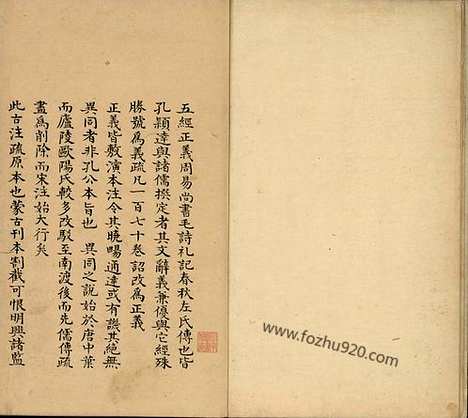 五經正義周易尚書毛詩礼記春秋左氏傳也皆
孔穎達與諸儒撰定者其文辭義兼優與它經殊
勝號為義疏凡一百七十卷詔改為正義
正義皆敷演本注令其曉暢通達或有譏其絕無
異同者非孔公本旨也 異同之說始於唐中葉
而廬陵歐陽氏較多改駁至南渡後而先儒傳疏
盡為削除而宋注始大行矣
此古注疏原本也蒙古刊本割截可恨明興諸監
www.fozhu920.com